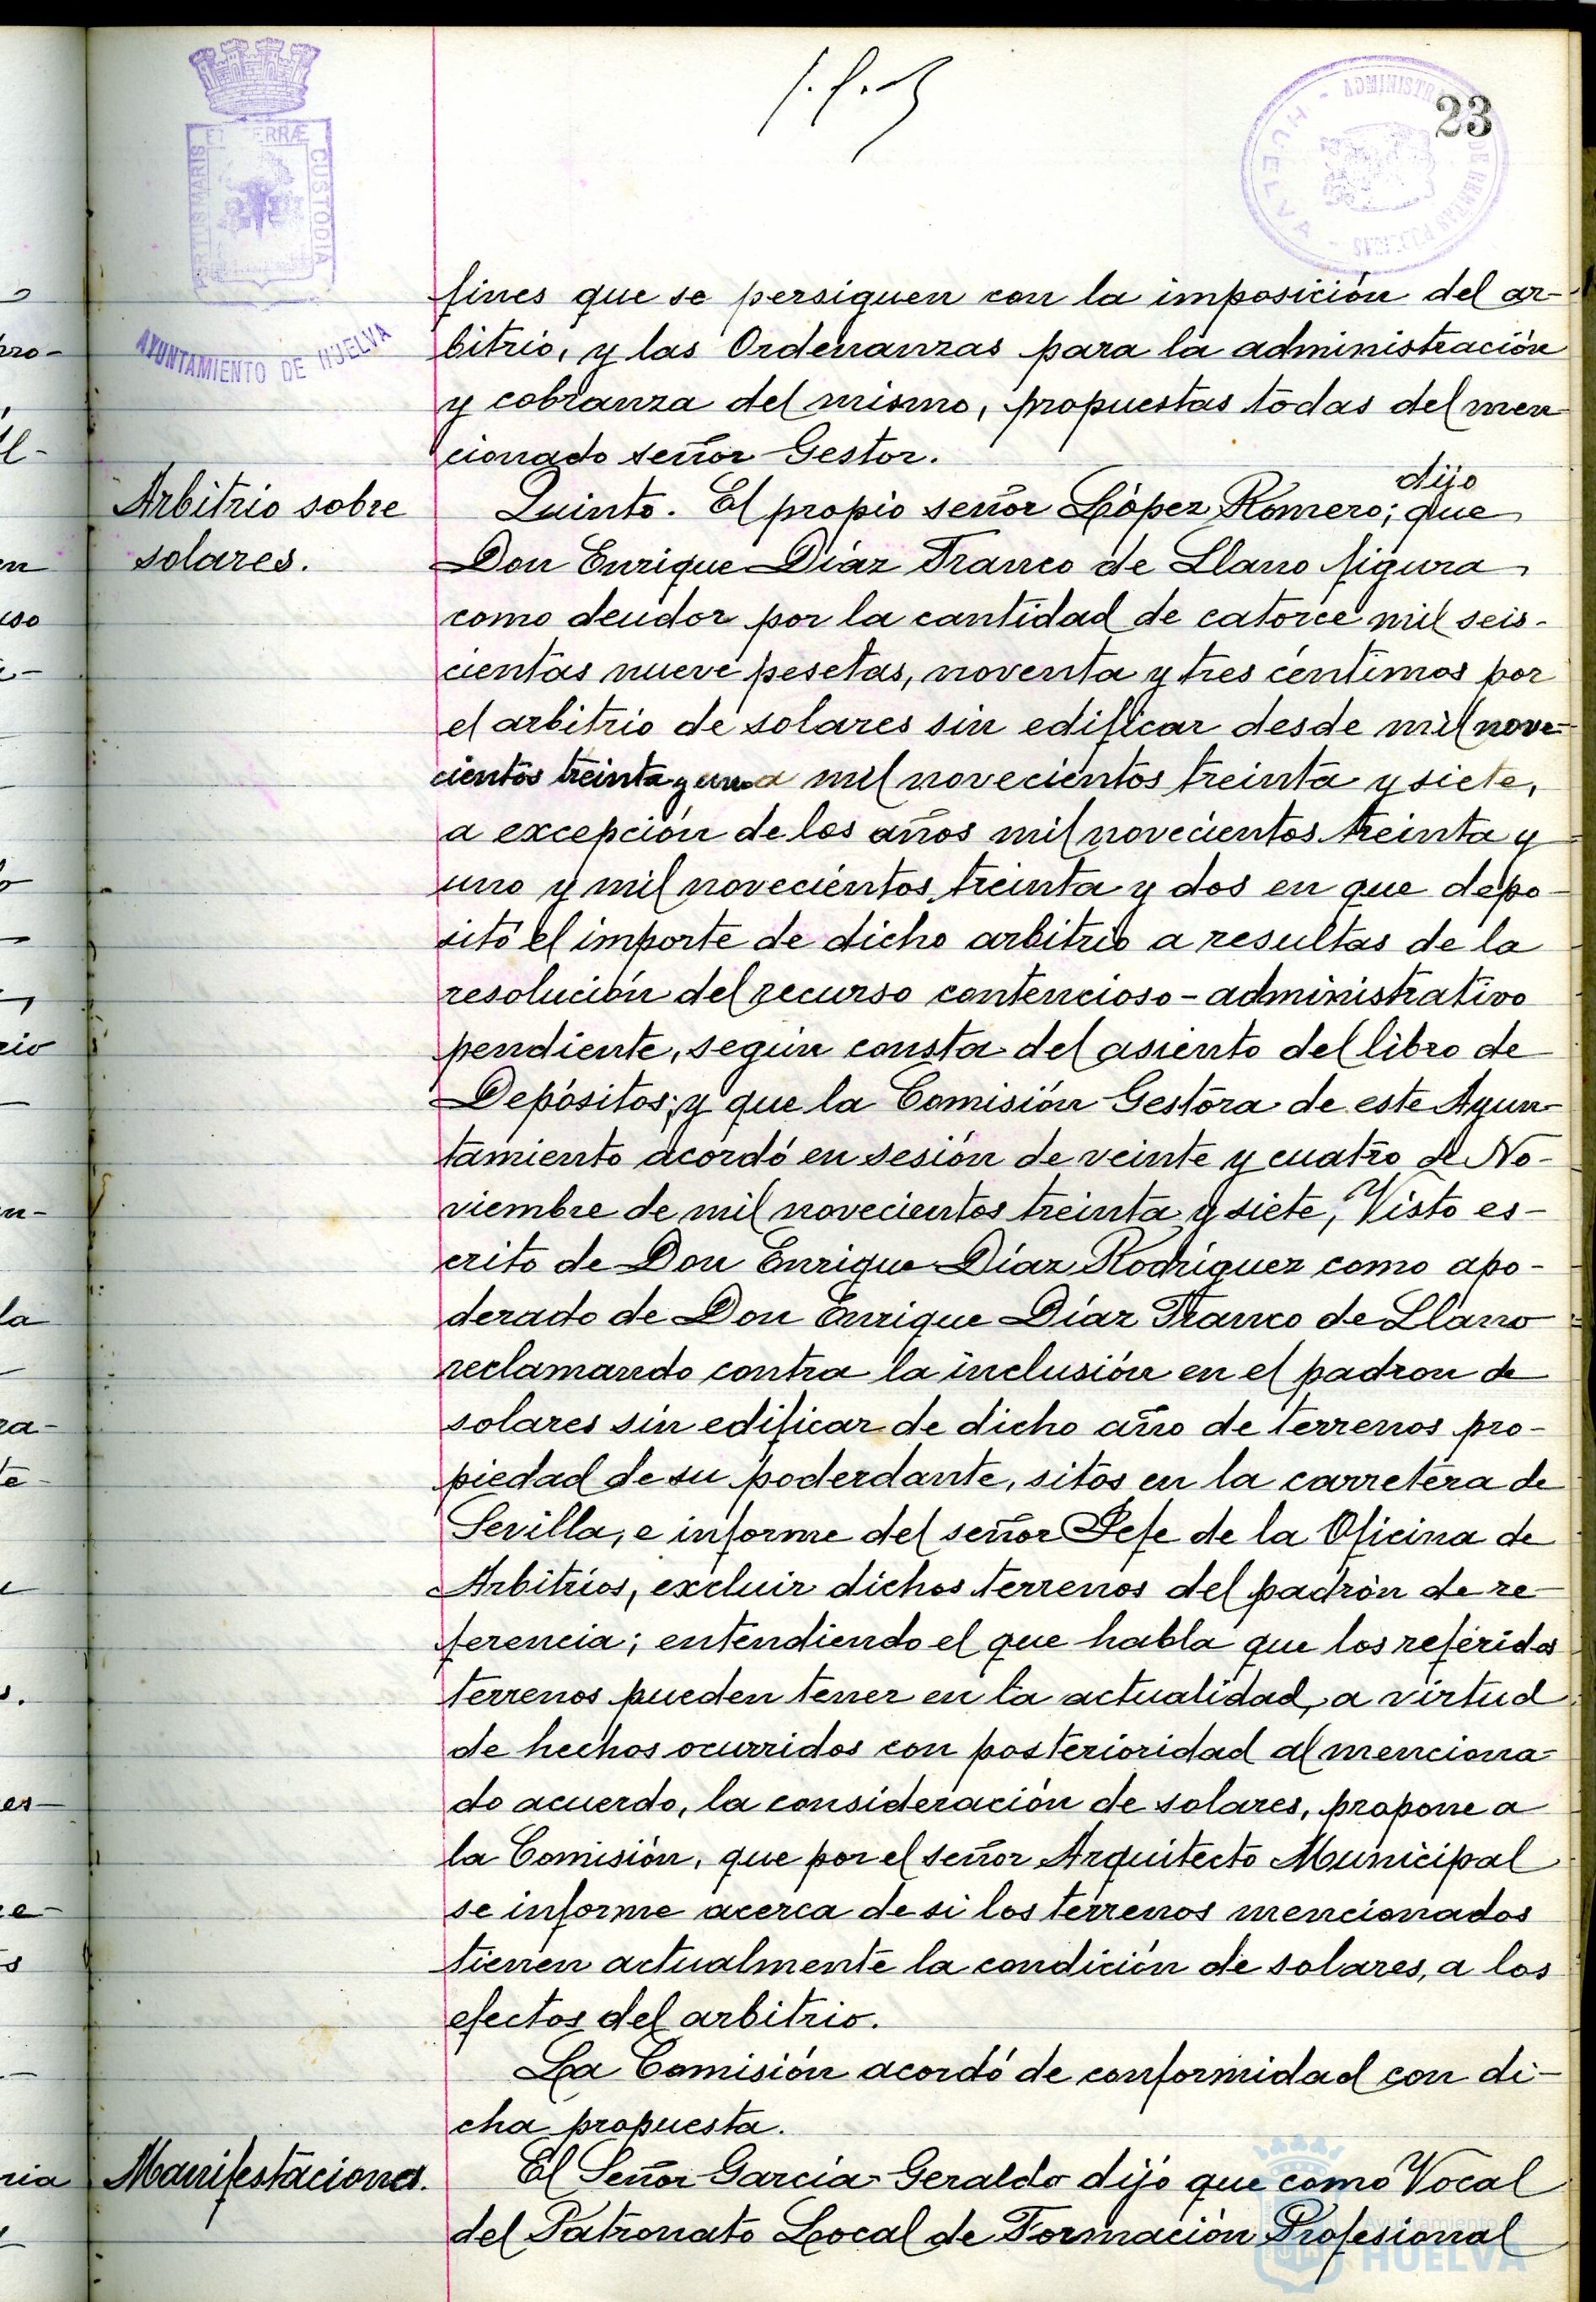 23
PORTUS MARIS ET TERRÆ CUSTODIA
AYUNTAMIENTO DE HUELVA
fines que se persiguen con la imposición del ar-
bitrio, y las Ordenanzas para la administración
y cobranza del mismo, propuestas todas del men
cionado señor Gestor.
Arbitrio sobre
solares.
dijo
Quinto. El propio señor López Romero; que
Don Enrique Díaz Franco de Llano figura
como deudor por la cantidad de catorce mil seis-
cientas nueve pesetas, noventa y tres céntimos por
el arbitrio de solares sin edificar desde mil nove-
cientos treinta y uno a mil novecientos treinta y siete,
a excepción de los años mil novecientos treinta y
uno y mil novecientos treinta y dos en que depo-
sitó el importe de dicho arbitrio a resultas de la
resolución del recurso contencioso-administrativo
pendiente, según consta del asiento del libro de
Depósitos; y que la Comisión Gestora de este Ayun-
tamiento acordó en sesión de veinte y cuatro de No-
viembre de mil novecientos treinta y siete, Visto es-
crito de Don Enrique Díaz Rodríguez como apo-
derado de Don Enrique Díaz Franco de Llano
reclamando contra la inclusión en el padron de
solares sin edificar de dicho año de terrenos pro-
piedad de su poderdante, sitos en la carretera de
Sevilla, e informe del señor Jefe de la Oficina de
Arbitrios, excluir dichos terrenos del padrón de re-
ferencia; entendiendo el que habla que los referidos
terrenos pueden tener en la actualidad, a virtud
de hechos ocurridos con posterioridad al menciona-
do acuerdo, la consideración de solares, propone a
la Comisión, que por el señor Arquitecto Municipal
se informe acerca de si los terrenos mencionados
tienen actualmente la condición de solares, a los
efectos del arbitrio.
La Comisión acordó de conformidad con di-
cha propuesta.
Manifestaciones.
El Señor García-Geraldo dijo que como Vocal
del Patronato Local de Formación Profesional
Ayuntamiento de
HUELVA